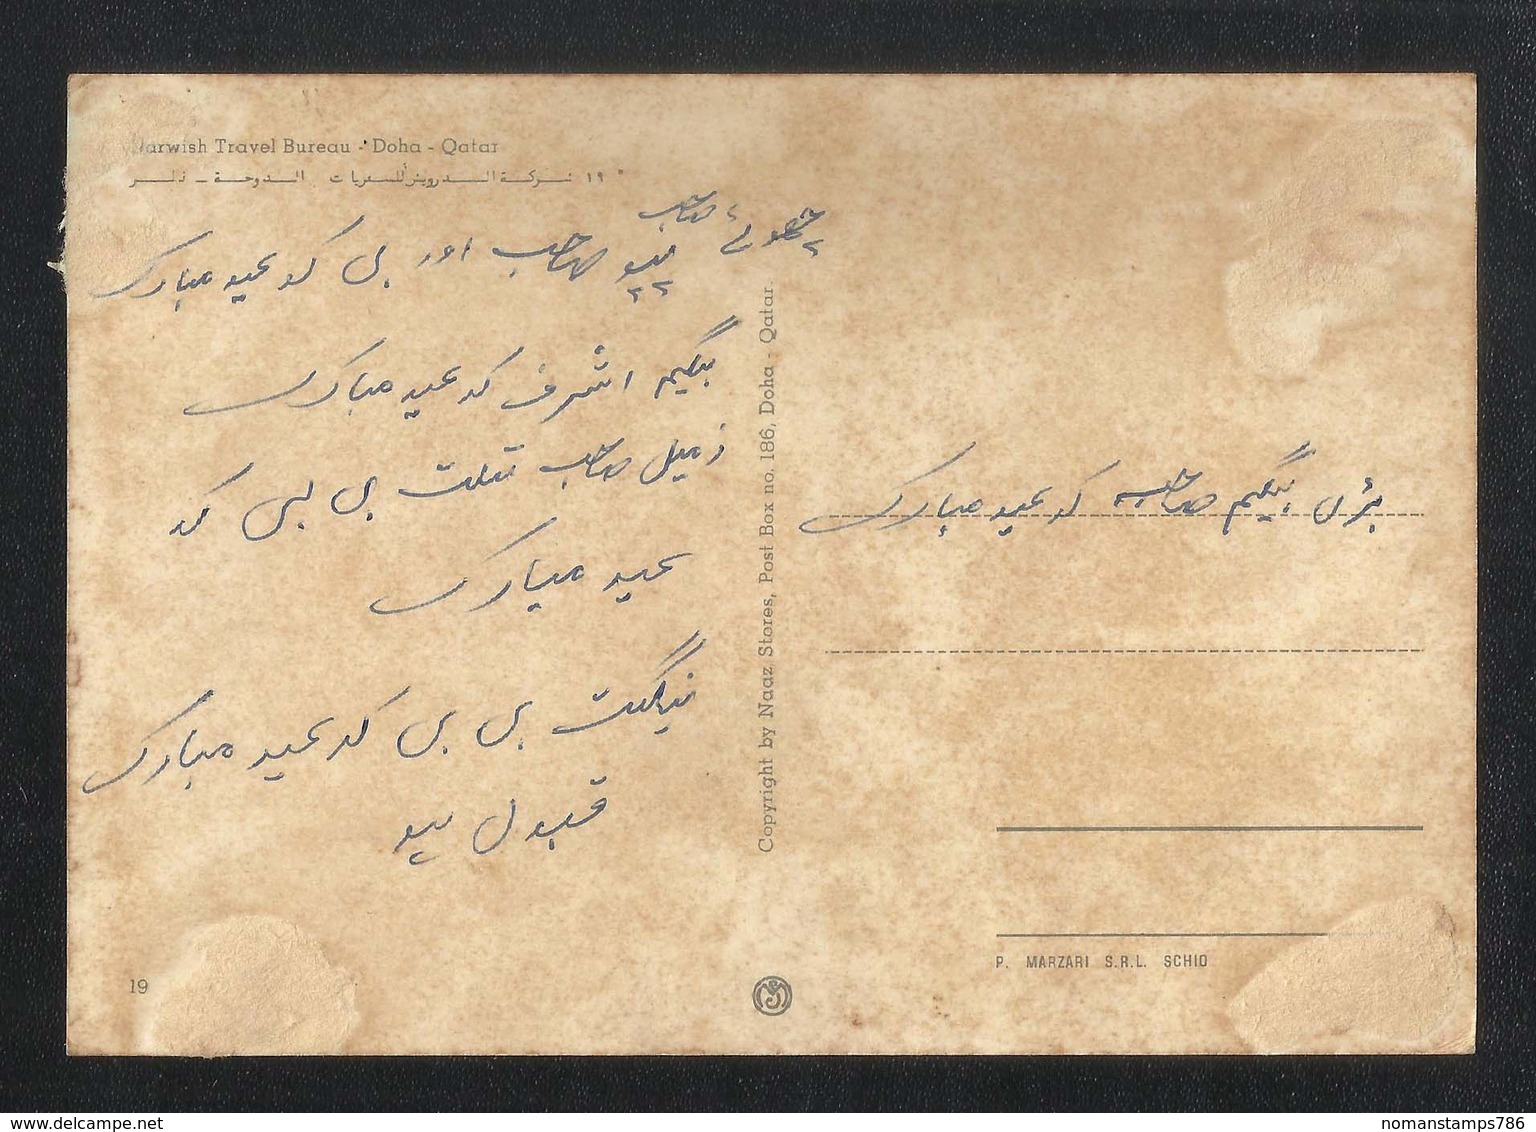 Darwish Travel Bureau - Doha - Qatar
١٩ شركة الدرويش للسفريات الدوحة - قطر
چھوٹے صاحب
پیو صاحب اور بی کو عید مبارک
بیگم اشرف کو عید مبارک
زمیل صاحب بی بی کو
عید مبارک
بی بی کو عید مبارک
قبول ہو
بڑی بیگم صاحبہ کو عید مبارک
Copyright by Naaz Stores, Post Box no. 186, Doha - Qatar.
P. MARZARI S.R.L. SCHIO
19
nomanstamps786
delcampe.net